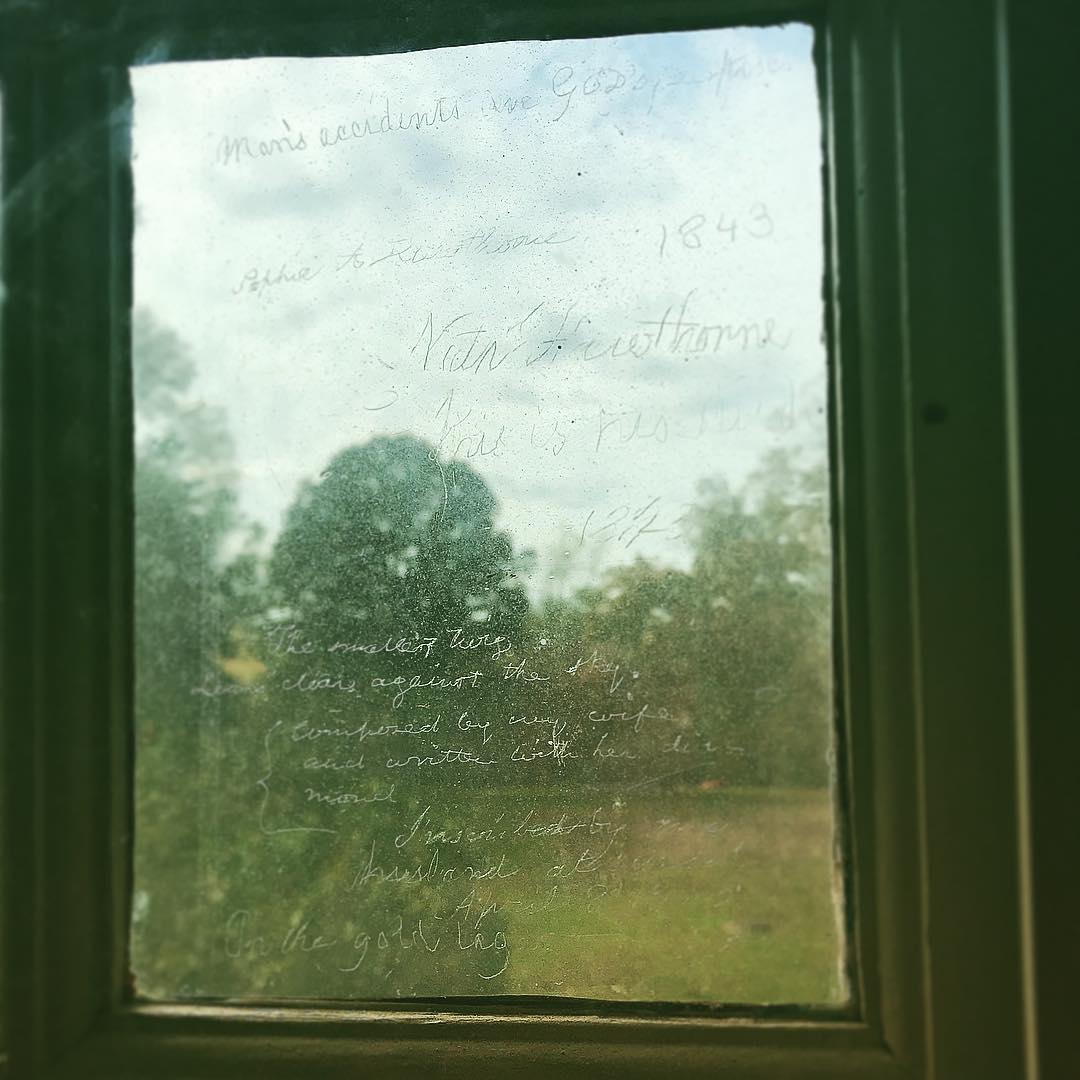 Man's accidents are GOD's purposes.
Sophia A. Hawthorne 1843
Nath Hawthorne
This is his study
1843
The smallest twig
Leans clear against the sky.
Composed by my wife
and written with her dia-
mond
Inscribed by my
husband at
April 3
In the gold light